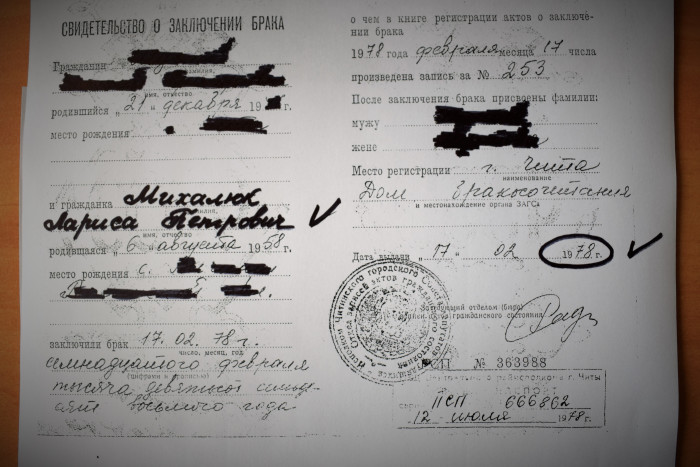 СВИДЕТЕЛЬСТВО О ЗАКЛЮЧЕНИИ БРАКА
Гражданин
фамилия,
имя, отчество
родившийся „ 21 " декабря 19 г.
место рождения
и гражданка Михалюк
Лариса Петрович
имя, отчество
родившаяся „ 6 " августа 1958 г.
место рождения с.
заключили брак 17.02.78 г.
число, месяц, год
семнадцатого февраля
(цифрами и прописью)
тысяча девятьсот семьде-
сят восьмого года
о чем в книге регистрации актов о заключе-
нии брака
1978 года февраля месяца 17 числа
произведена запись за № 253
После заключения брака присвоены фамилии:
мужу
жене
Место регистрации г. Чита
наименование
Дом бракосочетания
и местонахождение органа ЗАГСа
Дата выдачи „ 17 " 02 1978 г.
Заведующий отделом (бюро)
записи актов гражданского состояния
№ 363988
райисполкома г. Читы
ПСП 666862
12 июля 1978 г.